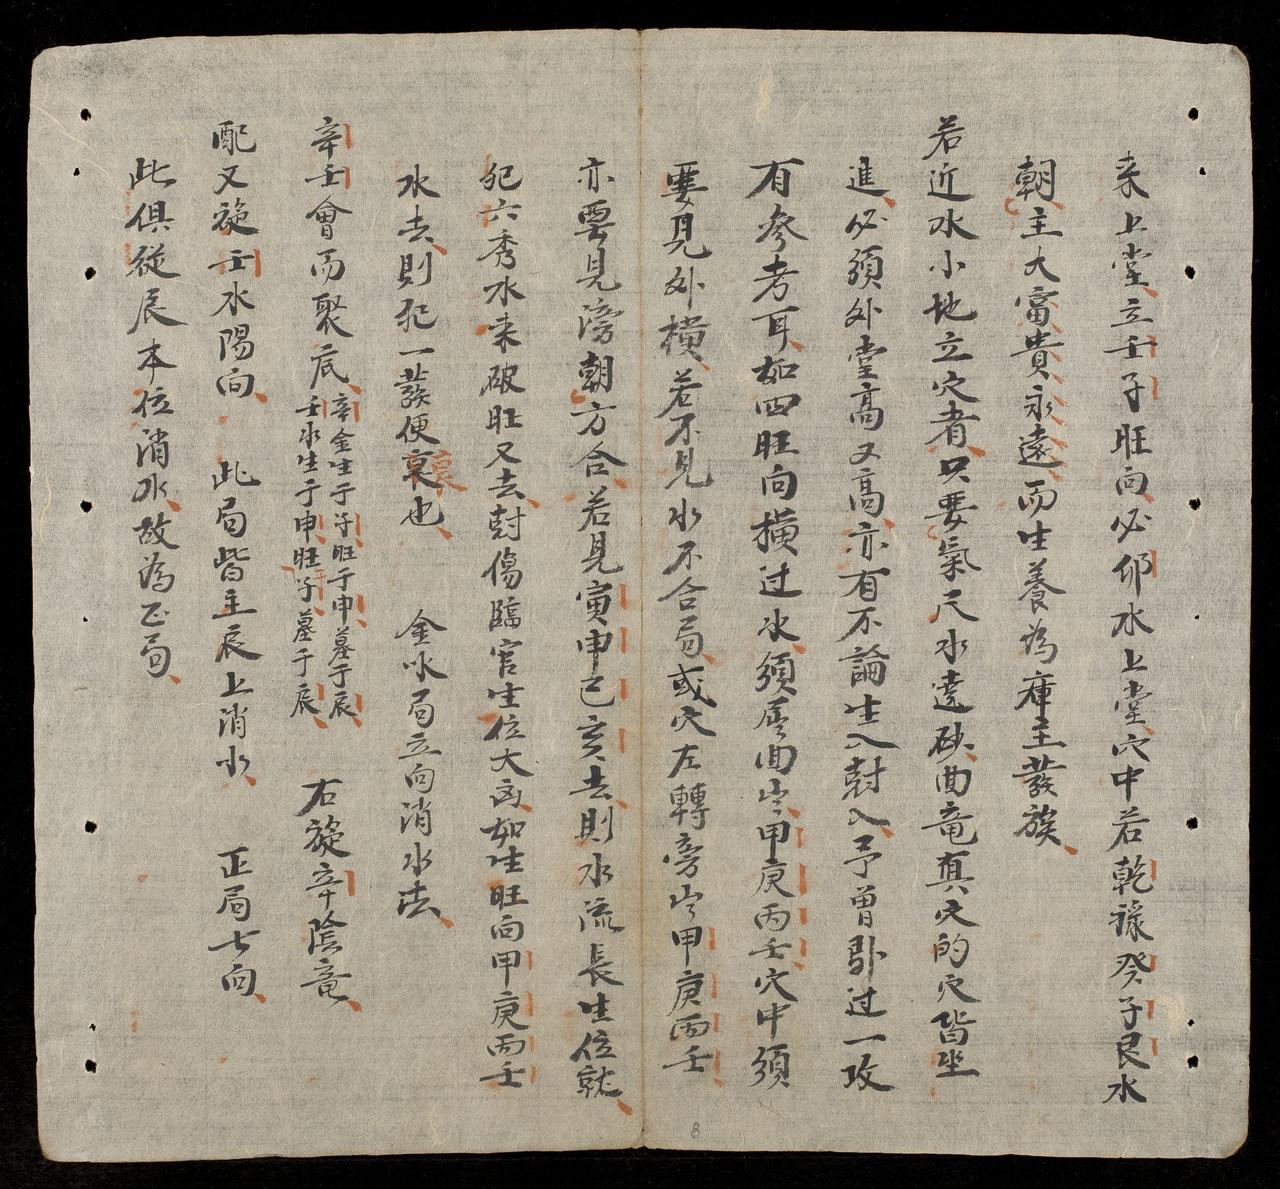 來上堂立壬子旺向必卯水上堂穴中若乾祿癸子艮水
朝主大富貴永遠而生養為庫主發族
若近水小地立穴者只要氣尺水遶砂曲竜真穴的穴皆坐
進必須外堂高又高亦有不論生入尅入予曾引过一攻
有參考耳如四旺向橫过水須屈曲出甲庚丙壬穴中須
要見外橫若不見水不合局或穴左轉旁出甲庚丙壬
亦要見滂朝方合若見寅申巳亥去則水流長生位就
犯六秀水来破旺又去尅傷臨官生位大凶如生旺向甲庚丙壬
水去則犯一發便衰也 金水局立向消水法
辛壬會而聚辰 辛金生于子旺于申墓于辰 壬水生于申旺子墓于辰 右旋辛陰竜
配又旋壬水陽向 此局皆主辰上消水 正局七向
此俱從辰本位消水故為正局
8